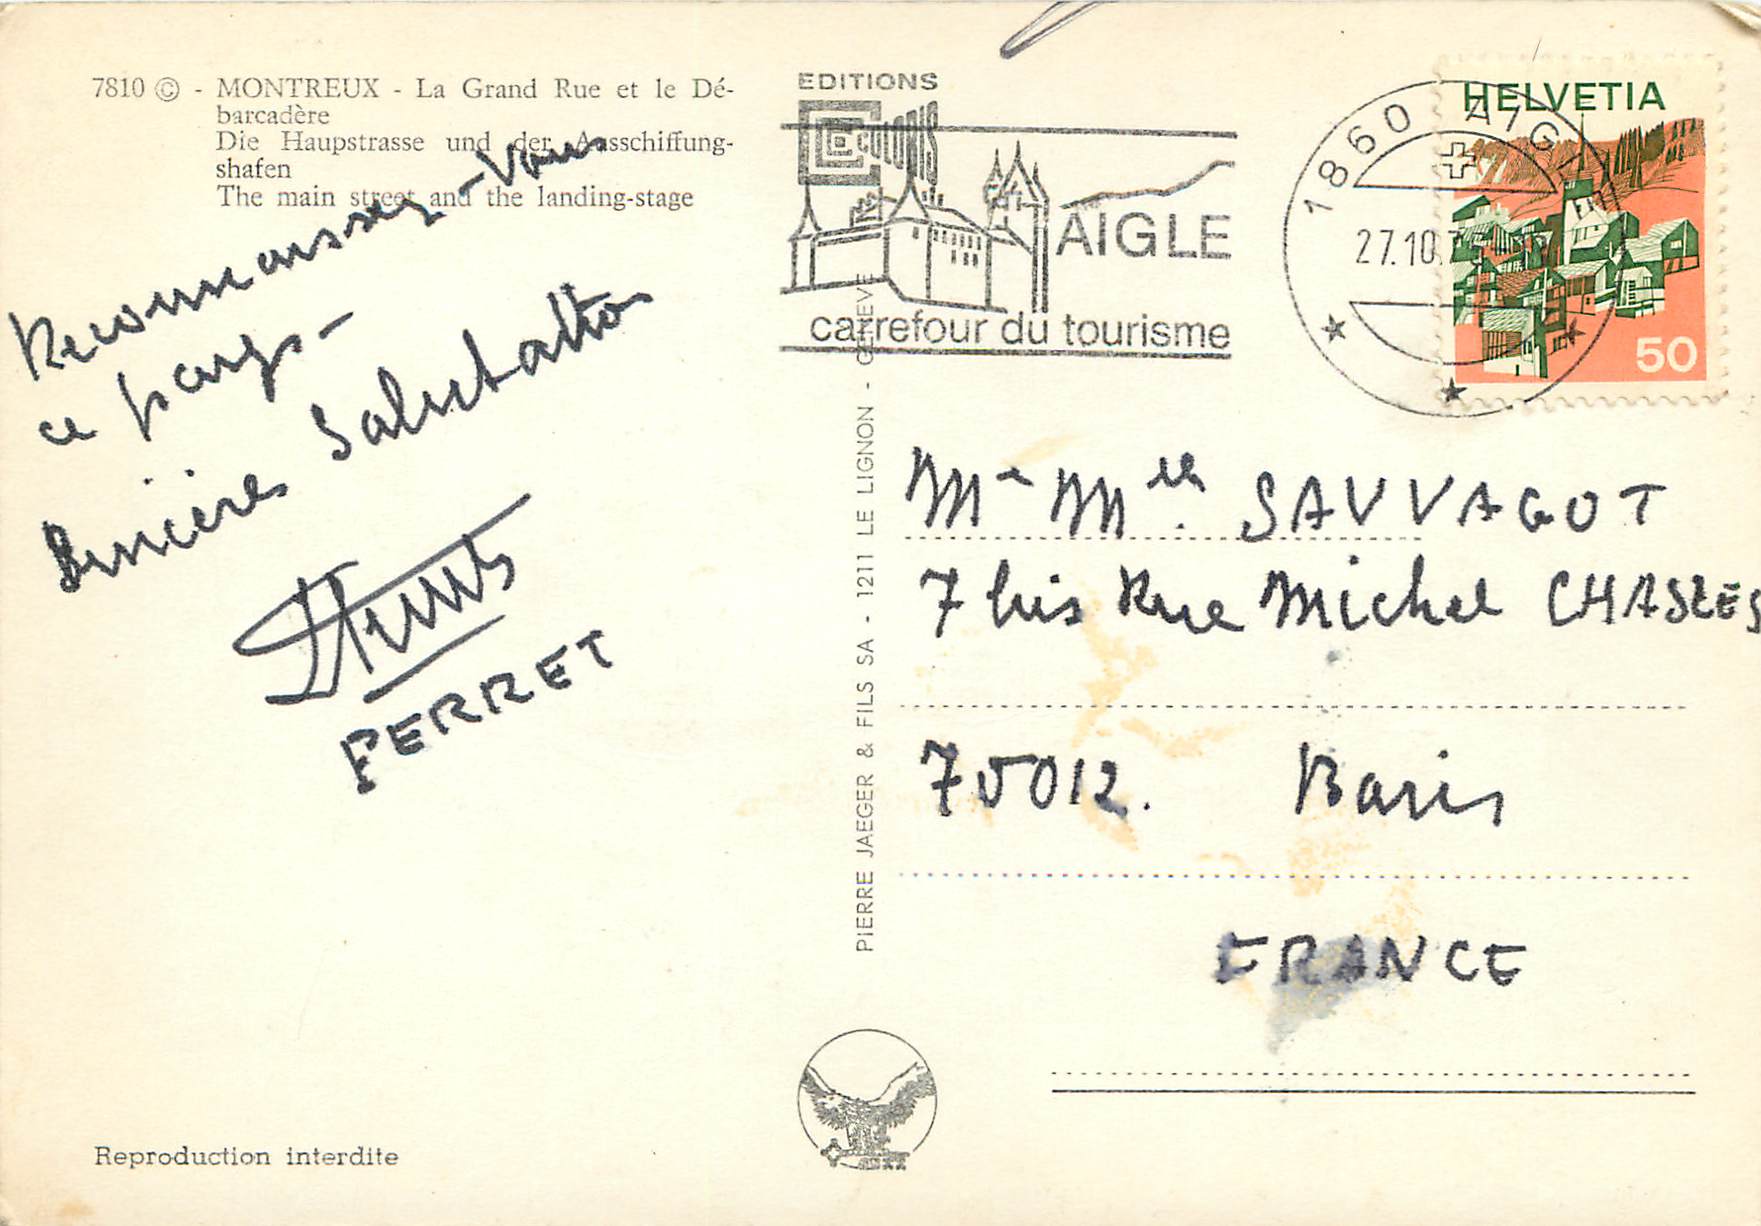 7810 © - MONTREUX - La Grand Rue et le Dé-
barcadère
Die Haupstrasse und der Ausschiffung-
shafen
The main street and the landing-stage
Reconnaissez-Vous
ce pays -
Sincères Salutations
PERRET
Reproduction interdite
EDITIONS
COLORIS
AIGLE
carrefour du tourisme
1860 AIGLE
27.10.
HELVETIA
50
PIERRE JAEGER & FILS SA - 1211 LE LIGNON - GENEVE
Me Melle SAUVAGOT
7 bis Rue Michel CHASLES
75012. Paris
FRANCE